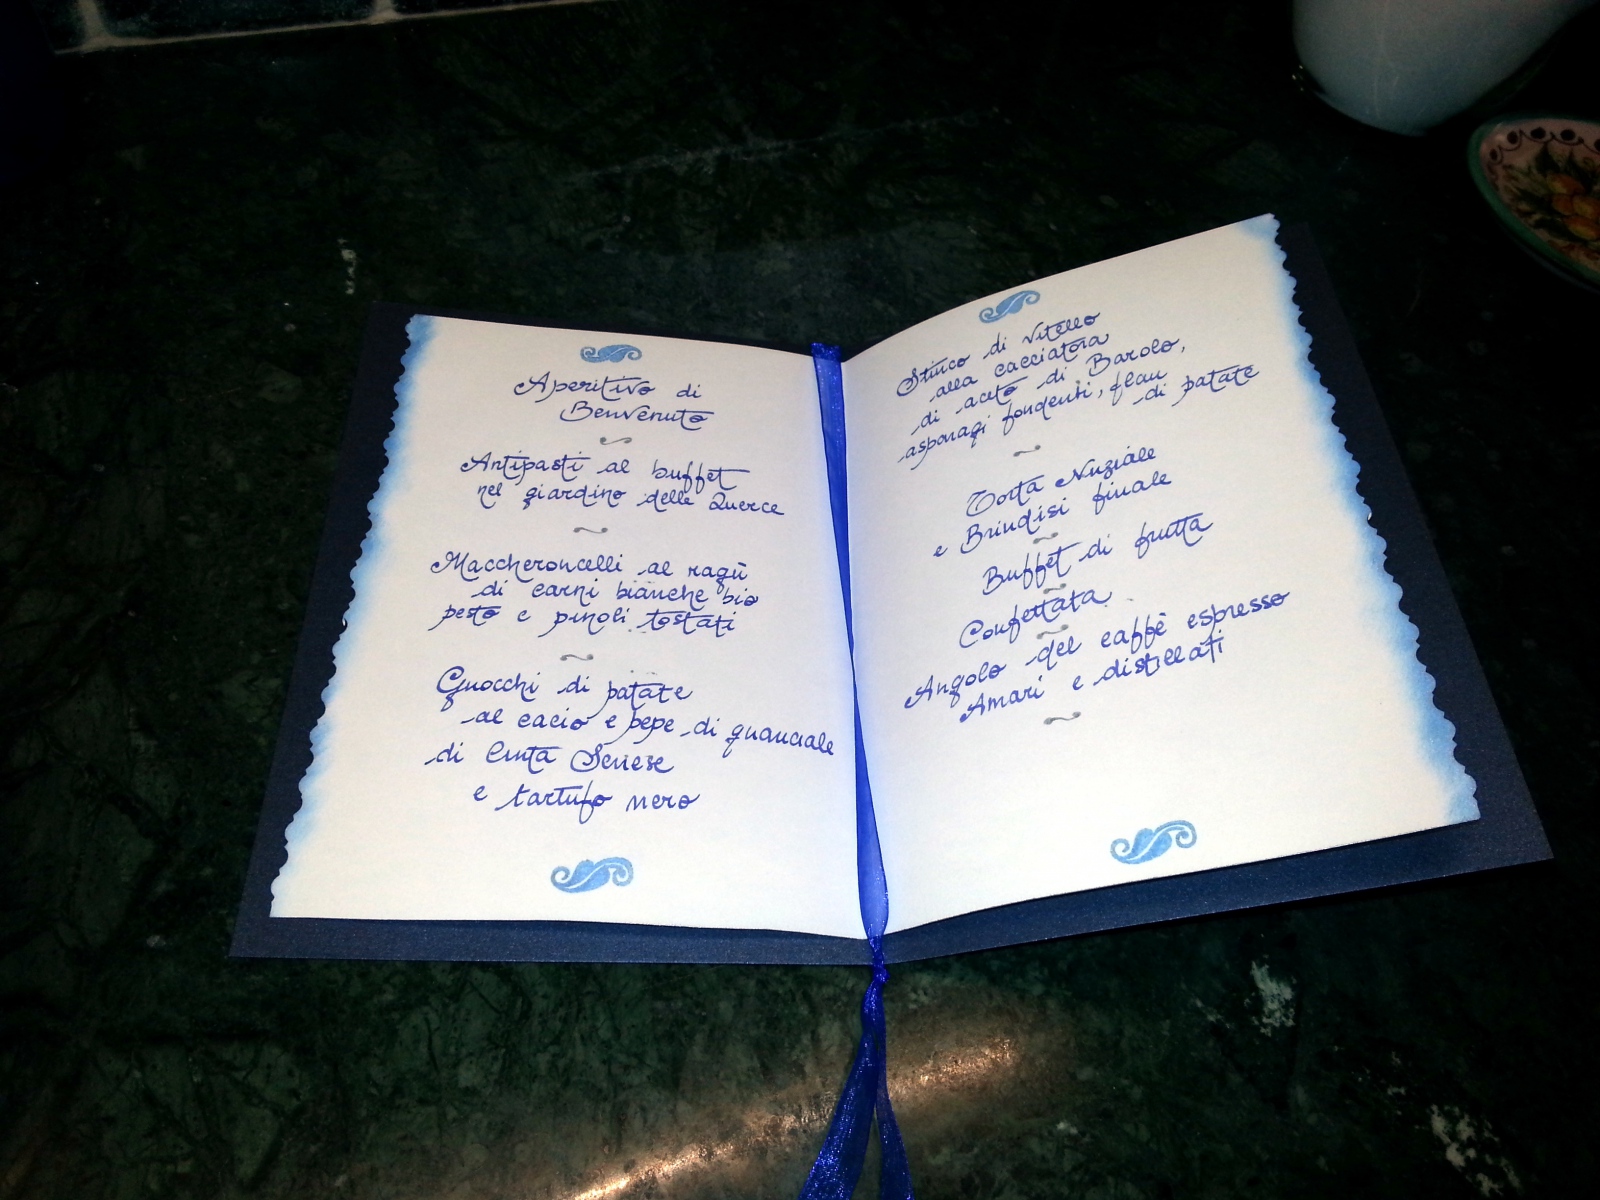 Aperitivo di
Benvenuto
Antipasti al buffet
nel giardino delle Querce
Maccheroncelli al ragù
di carni bianche bio
pesto e pinoli tostati
Gnocchi di patate
al cacio e pepe di guanciale
di Cinta Senese
e tartufo nero
Stinco di vitello
alla cacciatora
di aceto di Barolo,
asparagi fondenti, flan
di patate
Torta Nuziale
e Brindisi finale
Buffet di frutta
Confettata
Angolo del caffè espresso
Amari e distillati